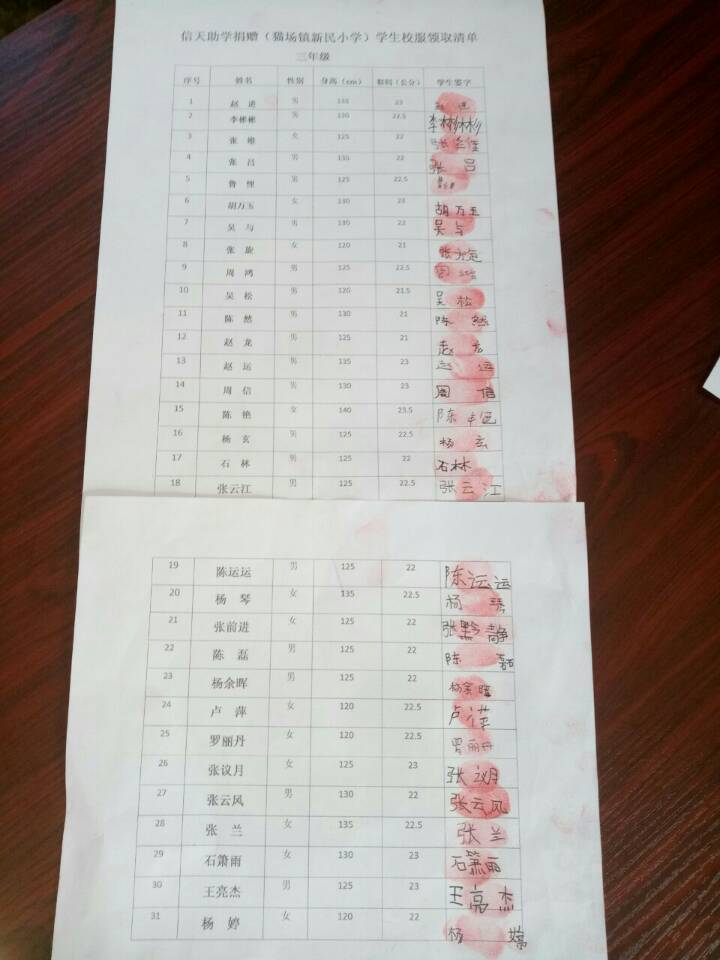 信天助学捐赠（猫场镇新民小学）学生校服领取清单
三年级
序号 姓名 性别 身高（cm） 鞋码（长分） 学生签字
1 赵进 男 135 23
2 李彬彬 男 130 22.5 李彬彬
3 张维 女 125 22 张
4 张昌 男 135 22 张吕
5 鲁恒 男 125 22.5
6 胡万玉 女 130 23 胡万玉
7 吴与 男 130 22 吴与
8 张旋 女 120 21 张旋
9 周鸿 男 125 22.5 周鸿
10 吴松 男 120 21.5 吴松
11 陈然 男 130 21 陈然
12 赵龙 男 125 21 赵龙
13 赵运 男 135 23 赵运
14 周信 男 130 23 周信
15 陈艳 女 140 23.5 陈艳
16 杨玄 男 125 22.5 杨玄
17 石林 男 125 22 石林
18 张云江 男 125 22.5 张云江
19 陈运运 男 125 22 陈运运
20 杨琴 女 135 22.5 杨琴
21 张前进 女 125 22 张黔静
22 陈磊 男 125 22 陈磊
23 杨余晖 男 125 22 杨余晖
24 卢萍 女 120 22.5 卢萍
25 罗丽丹 女 120 22.5 罗丽丹
26 张议月 女 125 23 张议月
27 张云风 男 130 22 张云风
28 张兰 女 135 22.5 张兰
29 石箫雨 女 130 23 石箫雨
30 王亮杰 男 125 23 王亮杰
31 杨婷 女 120 22 杨婷